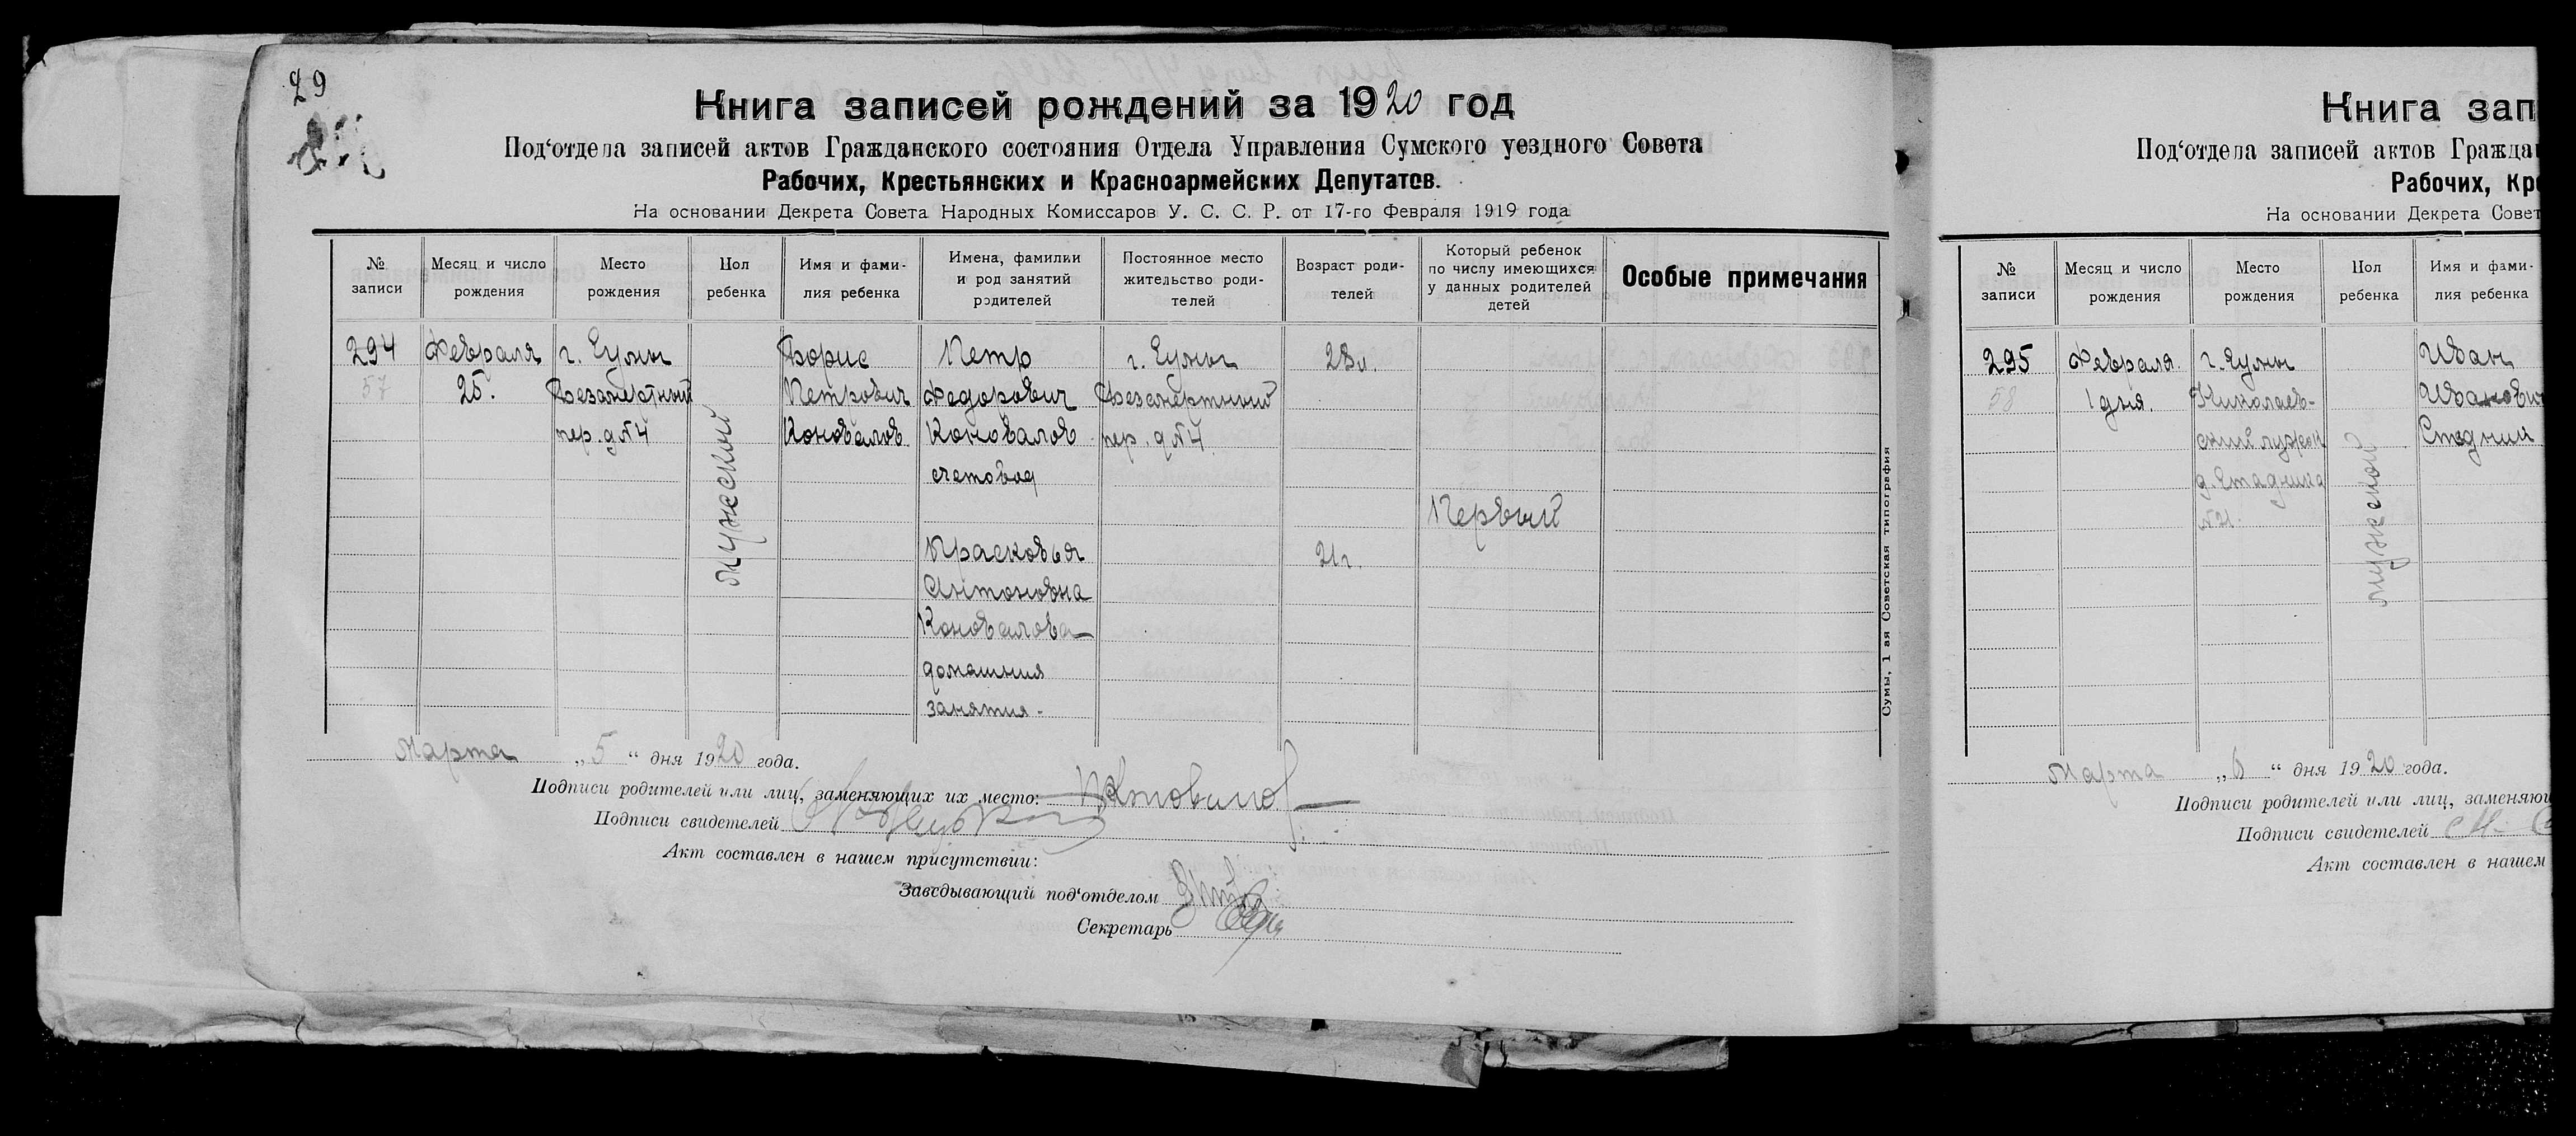 29
Книга записей рождений за 1920 год
Под‘отдела записей актов Гражданского состояния Отдела Управления Сумского уездного Совета
Рабочих, Крестьянских и Красноармейских Депутатов.
На основании Декрета Совета Народных Комиссаров У. С. С. Р. от 17-го Февраля 1919 года
№ записи
Месяц и число рождения
Место рождения
Пол ребенка
Имя и фами-
лия ребенка
Имена, фамилии
и род занятий
родителей
Постоянное место
жительство роди-
телей
Возраст роди-
телей
Который ребенок
по числу имеющихся
у данных родителей
детей
Особые примечания
294
57
Февраля
25.
г. Сумы
пер. д №4
Мужеский
Борис
Петрович
Коновалов
Петр
Федорович
Коновалов
счетовод
Прасковья
Антоновна
Коновалова
домашния
занятия.
г. Сумы
пер. д №4
28 л.
21 г.
Первый
Сумы, 1 ая Советская типография
Марта „5“ дня 1920 года.
Подписи родителей или лиц, заменяющих их место:
Подписи свидетелей
Акт составлен в нашем присутствии:
Заведывающий под‘отделом
Секретарь
Книга зап
Под‘отдела записей актов Гражда
Рабочих, Кре
На основании Декрета Совет
№ записи
Месяц и число рождения
Место рождения
Пол ребенка
Имя и фами-
лия ребенка
295
58
Февраля
1 дня.
г. Сумы
Николаев-
ский
д. Стадника
мужеский
Иван
Иванович
Марта „6“ дня 1920 года.
Подписи родителей или лиц, заменяющ
Подписи свидетелей
Акт составлен в нашем